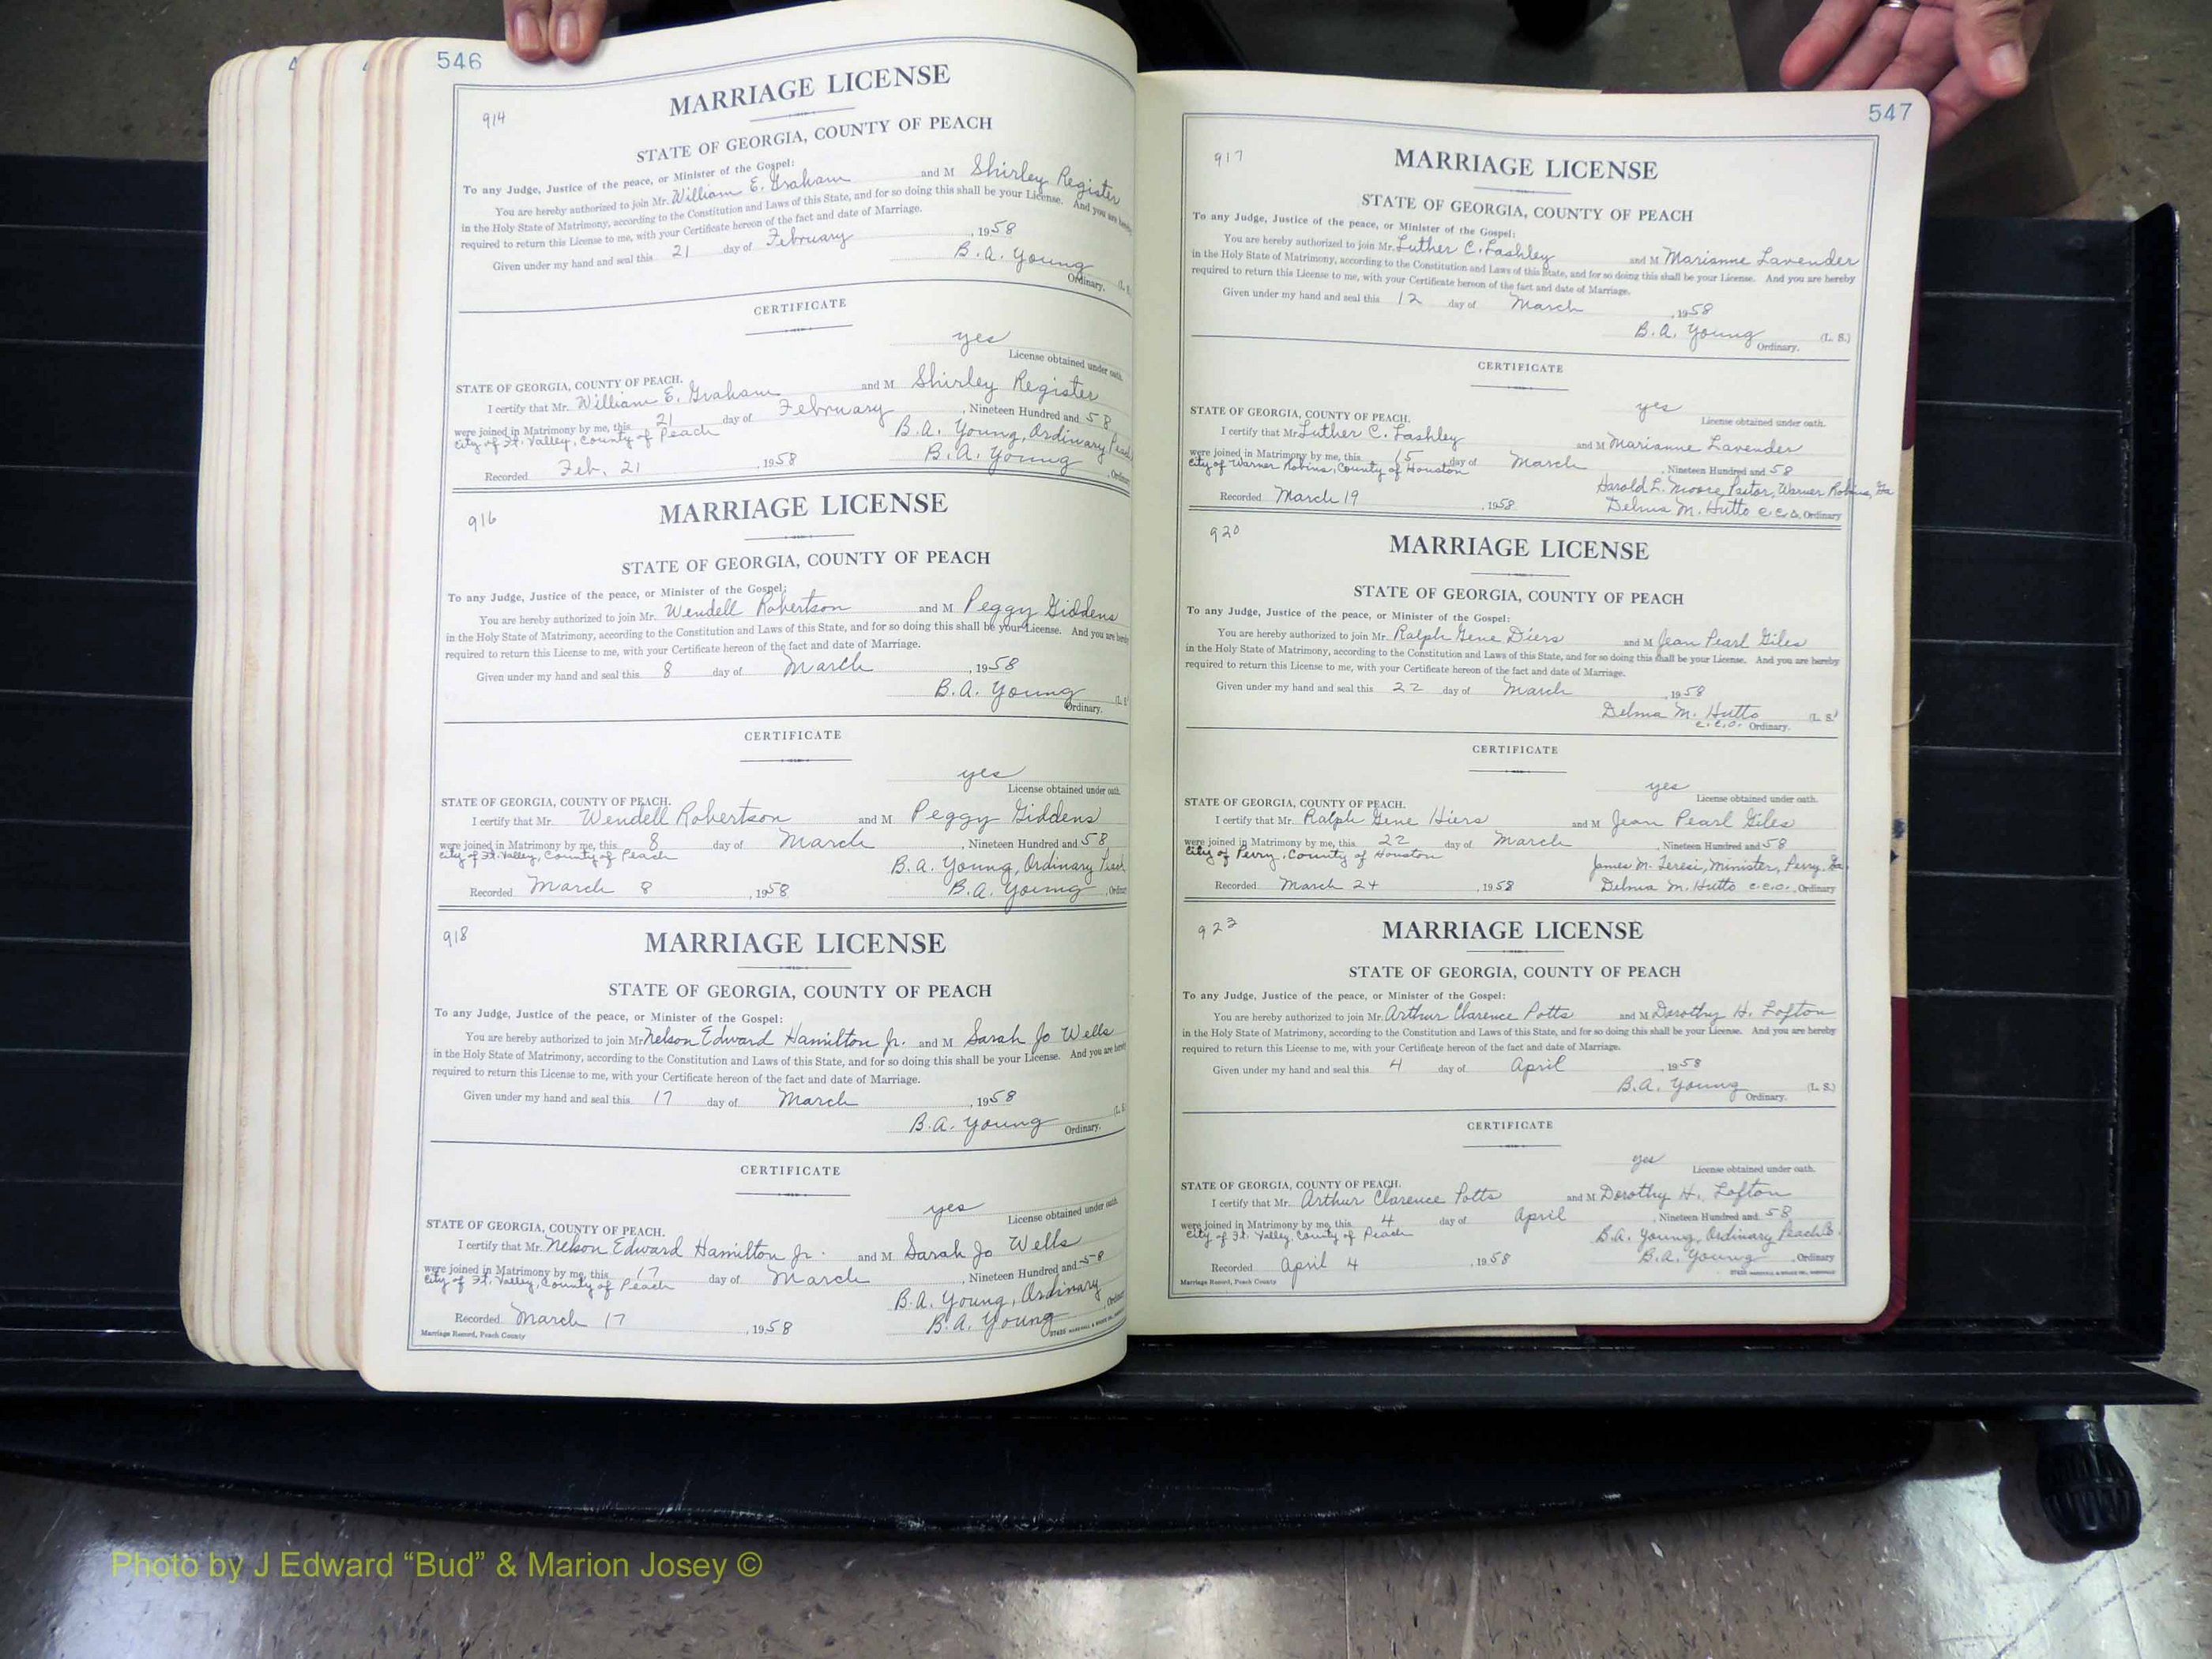 546
914
MARRIAGE LICENSE
STATE OF GEORGIA, COUNTY OF PEACH
To any Judge, Justice of the peace, or Minister of the Gospel:
You are hereby authorized to join Mr. William E. Graham and M Shirley Register
in the Holy State of Matrimony, according to the Constitution and Laws of this State, and for so doing this shall be your License. And you are hereby
required to return this License to me, with your Certificate hereon of the fact and date of Marriage.
Given under my hand and seal this 21 day of February, 1958
B.A. Young (L. S.
Ordinary.
CERTIFICATE
yes
License obtained under oath.
STATE OF GEORGIA, COUNTY OF PEACH.
I certify that Mr. William E. Graham and M Shirley Register
were joined in Matrimony by me, this 21 day of February, Nineteen Hundred and 58
City of Ft. Valley, County of Peach B.A. Young, Ordinary Peach
Recorded Feb. 21, 1958 B.A. Young, Ordinary
916
MARRIAGE LICENSE
STATE OF GEORGIA, COUNTY OF PEACH
To any Judge, Justice of the peace, or Minister of the Gospel:
You are hereby authorized to join Mr. Wendell Robertson and M Peggy Giddens
in the Holy State of Matrimony, according to the Constitution and Laws of this State, and for so doing this shall be your License. And you are hereby
required to return this License to me, with your Certificate hereon of the fact and date of Marriage.
Given under my hand and seal this 8 day of March, 1958
B.A. Young (L. S
Ordinary.
CERTIFICATE
yes
License obtained under oath.
STATE OF GEORGIA, COUNTY OF PEACH.
I certify that Mr. Wendell Robertson and M Peggy Giddens
were joined in Matrimony by me, this 8 day of March, Nineteen Hundred and 58
City of Ft. Valley, County of Peach B.A. Young, Ordinary Peach
Recorded March 8, 1958 B.A. Young, Ordinar
918
MARRIAGE LICENSE
STATE OF GEORGIA, COUNTY OF PEACH
To any Judge, Justice of the peace, or Minister of the Gospel:
You are hereby authorized to join Mr Nelson Edward Hamilton Jr. and M Sarah Jo Wells
in the Holy State of Matrimony, according to the Constitution and Laws of this State, and for so doing this shall be your License. And you are hereby
required to return this License to me, with your Certificate hereon of the fact and date of Marriage.
Given under my hand and seal this 17 day of March, 1958
B.A. Young (L. S
Ordinary.
CERTIFICATE
yes
License obtained under oath.
STATE OF GEORGIA, COUNTY OF PEACH.
I certify that Mr. Nelson Edward Hamilton Jr. and M Sarah Jo Wells
were joined in Matrimony by me, this 17 day of March, Nineteen Hundred and 58
City of Ft. Valley, County of Peach B.A. Young, Ordinary
Recorded March 17, 1958 B.A. Young, Ordin
Marriage Record, Peach County
547
917
MARRIAGE LICENSE
STATE OF GEORGIA, COUNTY OF PEACH
To any Judge, Justice of the peace, or Minister of the Gospel:
You are hereby authorized to join Mr. Luther C. Lashley and M Marianne Lavender
in the Holy State of Matrimony, according to the Constitution and Laws of this State, and for so doing this shall be your License. And you are hereby
required to return this License to me, with your Certificate hereon of the fact and date of Marriage.
Given under my hand and seal this 12 day of March, 1958
B.A. Young (L. S.)
Ordinary.
CERTIFICATE
yes
License obtained under oath.
STATE OF GEORGIA, COUNTY OF PEACH.
I certify that Mr Luther C. Lashley and M Marianne Lavender
were joined in Matrimony by me, this 15 day of March, Nineteen Hundred and 58
City of Warner Robins, County of Houston Harold L. Moore, Pastor, Warner Robins, Ga
Recorded March 19, 1958 Delma M. Hutto c.c.o, Ordinary
920
MARRIAGE LICENSE
STATE OF GEORGIA, COUNTY OF PEACH
To any Judge, Justice of the peace, or Minister of the Gospel:
You are hereby authorized to join Mr. Ralph Gene Diers and M Jean Pearl Giles
in the Holy State of Matrimony, according to the Constitution and Laws of this State, and for so doing this shall be your License. And you are hereby
required to return this License to me, with your Certificate hereon of the fact and date of Marriage.
Given under my hand and seal this 22 day of March, 1958
Delma M. Hutto (L. S.)
c.c.o. Ordinary.
CERTIFICATE
yes
License obtained under oath.
STATE OF GEORGIA, COUNTY OF PEACH.
I certify that Mr. Ralph Gene Hiers and M Jean Pearl Giles
were joined in Matrimony by me, this 22 day of March, Nineteen Hundred and 58
City of Perry, County of Houston James M. Teresi, Minister, Perry, Ga.
Recorded March 24, 1958 Delma M. Hutto c.c.o., Ordinary
923
MARRIAGE LICENSE
STATE OF GEORGIA, COUNTY OF PEACH
To any Judge, Justice of the peace, or Minister of the Gospel:
You are hereby authorized to join Mr. Arthur Clarence Potts and M Dorothy H. Lofton
in the Holy State of Matrimony, according to the Constitution and Laws of this State, and for so doing this shall be your License. And you are hereby
required to return this License to me, with your Certificate hereon of the fact and date of Marriage.
Given under my hand and seal this 4 day of April, 1958
B.A. Young (L. S.)
Ordinary.
CERTIFICATE
yes
License obtained under oath.
STATE OF GEORGIA, COUNTY OF PEACH.
I certify that Mr. Arthur Clarence Potts and M Dorothy H. Lofton
were joined in Matrimony by me, this 4 day of April, Nineteen Hundred and 58
City of Ft. Valley County of Peach B.A. Young, Ordinary Peach Co.
Recorded April 4, 1958 B.A. Young, Ordinary
Marriage Record, Peach County
Photo by J Edward “Bud” & Marion Josey ©